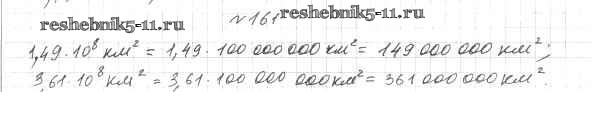 reshebnik5-11.ru
№161 reshebnik5-11.ru
1,49·10⁸ км² = 1,49·100 000 000 км² = 149 000 000 км²;
3,61·10⁸ км² = 3,61·100 000 000 км² = 361 000 000 км².